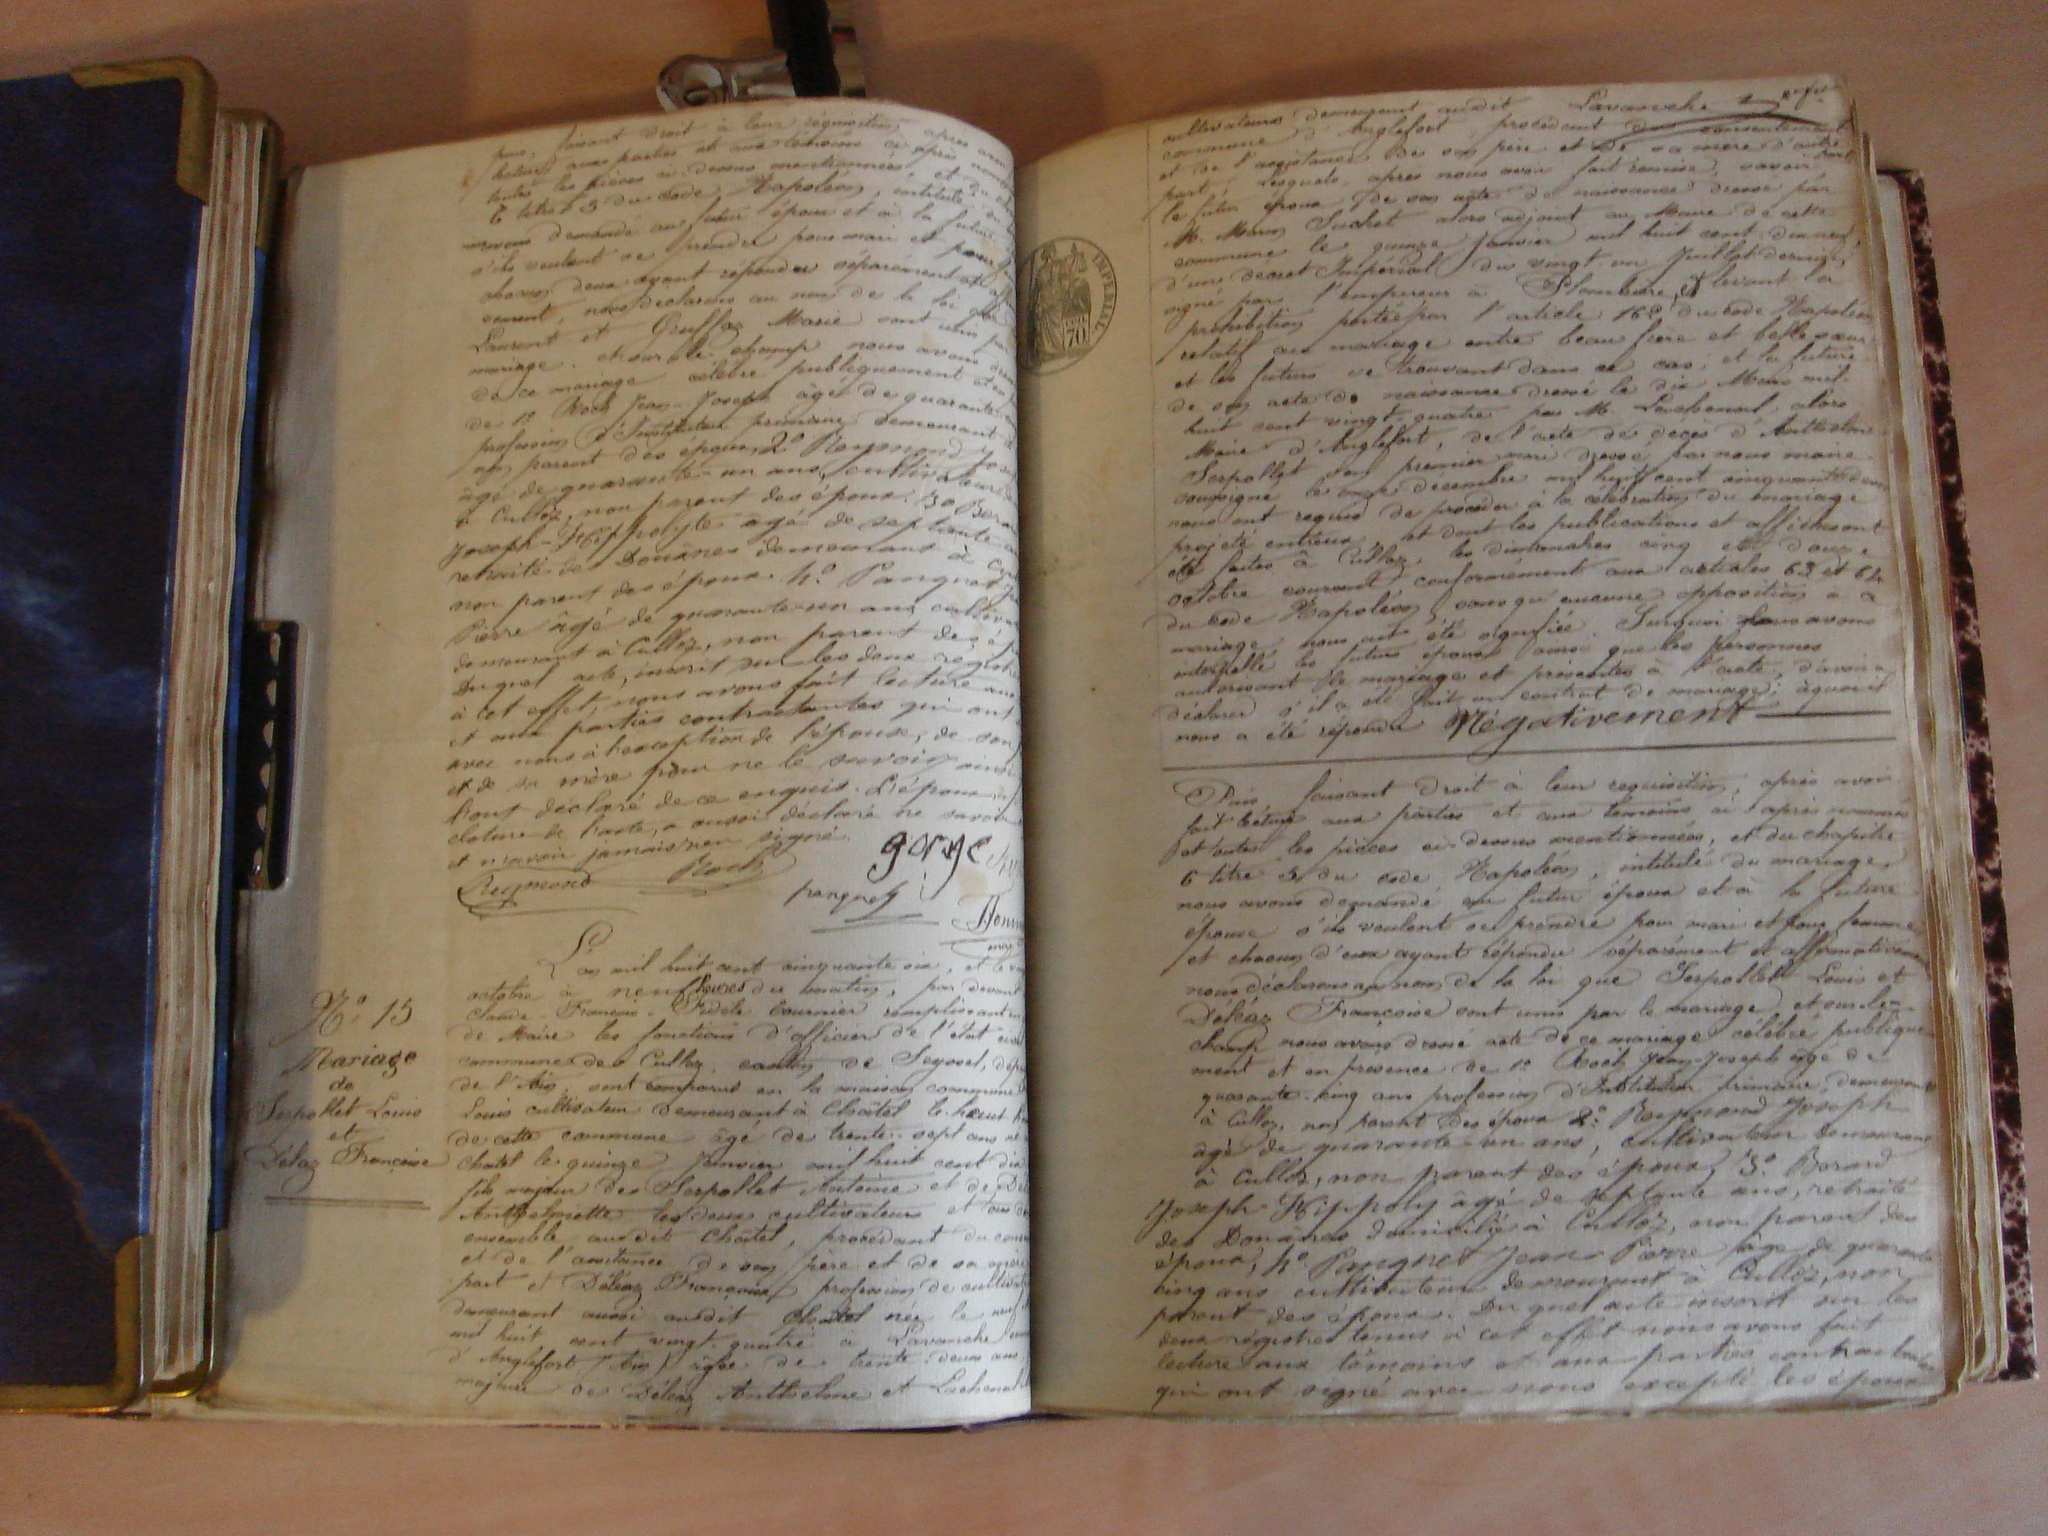 puis, faisant droit à leur réquisition, après avoir
lecture aux parties et aux témoins ci après
toutes les pièces ci-dessus mentionnées, et du
6 titre 5 du code Napoléon, intitulé du
avons demandé au futur époux et à la future
s'ils veulent se prendre pour mari et pour
chacun deux ayant répondu séparément et
vement, nous déclarons au nom de la loi que
Laurent et Gruffaz Marie sont unis par
mariage. et sur le champ nous avons
de ce mariage célébré publiquement et en
de 1º Roch Jean-Joseph âgé de quarante
profession d'Instituteur primaire demeurant
non parent des époux, 2º Reymond
âgé de quarante-un ans, cultivateur
à Culloz, non parent des époux. 3º
Joseph-Hippolyte âgé de septante
retraité des Douanes demeurant à
non parent des époux. 4º Pangnet
Pierre âgé de quarante-un ans, cultiva
demeurant à Culloz, non parent des
Duquel acte, inscrit sur les deux registres
à cet effet, nous avons fait lecture aux
et aux parties contractantes qui ont
avec nous à l'exception de l'épouse, de son
et de sa mère pour ne le savoir ainsi
l'ont déclaré de ce enquis. L'époux
cloture de l'acte, a aussi déclaré ne savoir
et n'avoir jamais rien signé.
Reymond Roch gorge
pangnet
L'an mil huit cent cinquante six, et le
octobre à neuf heures du matin, par devant
Claude-François-Fidèle Cournier remplissant
de Maire les fonctions d'officier de l'état civil
commune de Culloz, canton de Seyssel, dépa
de l'Ain, sont comparus en la maison commune
Louis cultivateur demeurant à Châtel le haut
de cette commune âgé de trente-sept ans né
chatel le quinze Janvier mil huit cent dix
fils majeur de Serpollet Antoine et de
Anthelmette les deux cultivateurs et
ensemble audit Chatel, procédant du
et de l'assistance de son père et de sa mère
part et Déléaz Françoise, profession de cultiva
demeurant aussi audit Chatel née le
mil huit cent vingt quatre à Lavanche
d'Anglefort (Ain) âgée de trente-deux ans
majeure de Déléaz Anthelme et Lachenal
Nº 15
Mariage
de
Serpollet Louis
et
Déléaz Françoise
IMPÉRIAL
70
cultivateurs demeurant audit Lavanche
commune d'Anglefort, procédant du consentement
et de l'assistance de son père et de sa mère d'autre
part. Lesquels, après nous avoir fait remise, savoir
le futur époux de son acte de naissance dressé par
M. Suchet alors adjoint au Maire de cette
commune le quinze Janvier mil huit cent dix neuf,
d'un décret Impérial du vingt-un Juillet dernier,
signé par l'empereur à Plombière, et levant la
prohibition portée par l'article 162 du code Napoléon
relatif au mariage entre beau frère et belle soeur
et les futurs se trouvant dans ce cas; et la future
de son acte de naissance dressé le dix Mars mil
huit cent vingt quatre par M. Lachenal, alors
Maire d'Anglefort, de l'acte de décès d'Anthelme
Serpollet son premier mari dressé par nous maire
soussigné le decembre mil huit cent cinquante
nous ont requis de procéder à la célébration du mariage
projeté entre eux, et dont les publications et affiches ont
été faites à Culloz, les dimanches cinq et douze
octobre courant, conformément aux articles 63 et 64
du code Napoléon, sans qu'aucune opposition à ce
mariage nous ait été signifiée. Surquoi nous avons
interpellé les futurs époux ainsi que les personnes
autorisant le mariage et présentes à l'acte, d'avoir à
déclarer s'il a été fait un contrat de mariage; à quoi il
nous a été répondu Négativement
Puis faisant droit à leur requisition, après avoir
fait lecture aux parties et aux témoins ci-après nommés
et toutes les pièces ci-dessus mentionnées, et du chapitre
6 titre 5 du code Napoléon, intitulé du mariage,
nous avons demandé au futur époux et à la future
épouse s'ils veulent se prendre pour mari et pour femme
et chacun d'eux ayant répondu séparément et affirmativement
nous déclarons au nom de la loi que Serpollet Louis et
Déléaz Françoise sont unis par le mariage et sur le-
champ nous avons dressé acte de ce mariage célébré publique
ment et en présence de 1º Roch Jean-Joseph âgé de
quarante-cinq ans profession d'Instituteur primaire, demeurant
à Culloz, non parent des époux 2º Reymond Joseph
âgé de quarante-un ans, cultivateur demeurant
à Culloz, non parent des époux, 3º Borard
Joseph-Hippoly âgé de septante ans, retraité
des Douanes domicilié à Culloz, non parent des
époux, 4º Pangnet Jean-Pierre âgé de quarante
cinq ans cultivateur demeurant à Culloz, non
parent des époux. Du quel acte inscrit sur les
deux régistres tenus à cet effet nous avons fait
lecture aux témoins et aux parties contractantes
qui ont signé avec nous excepté les époux